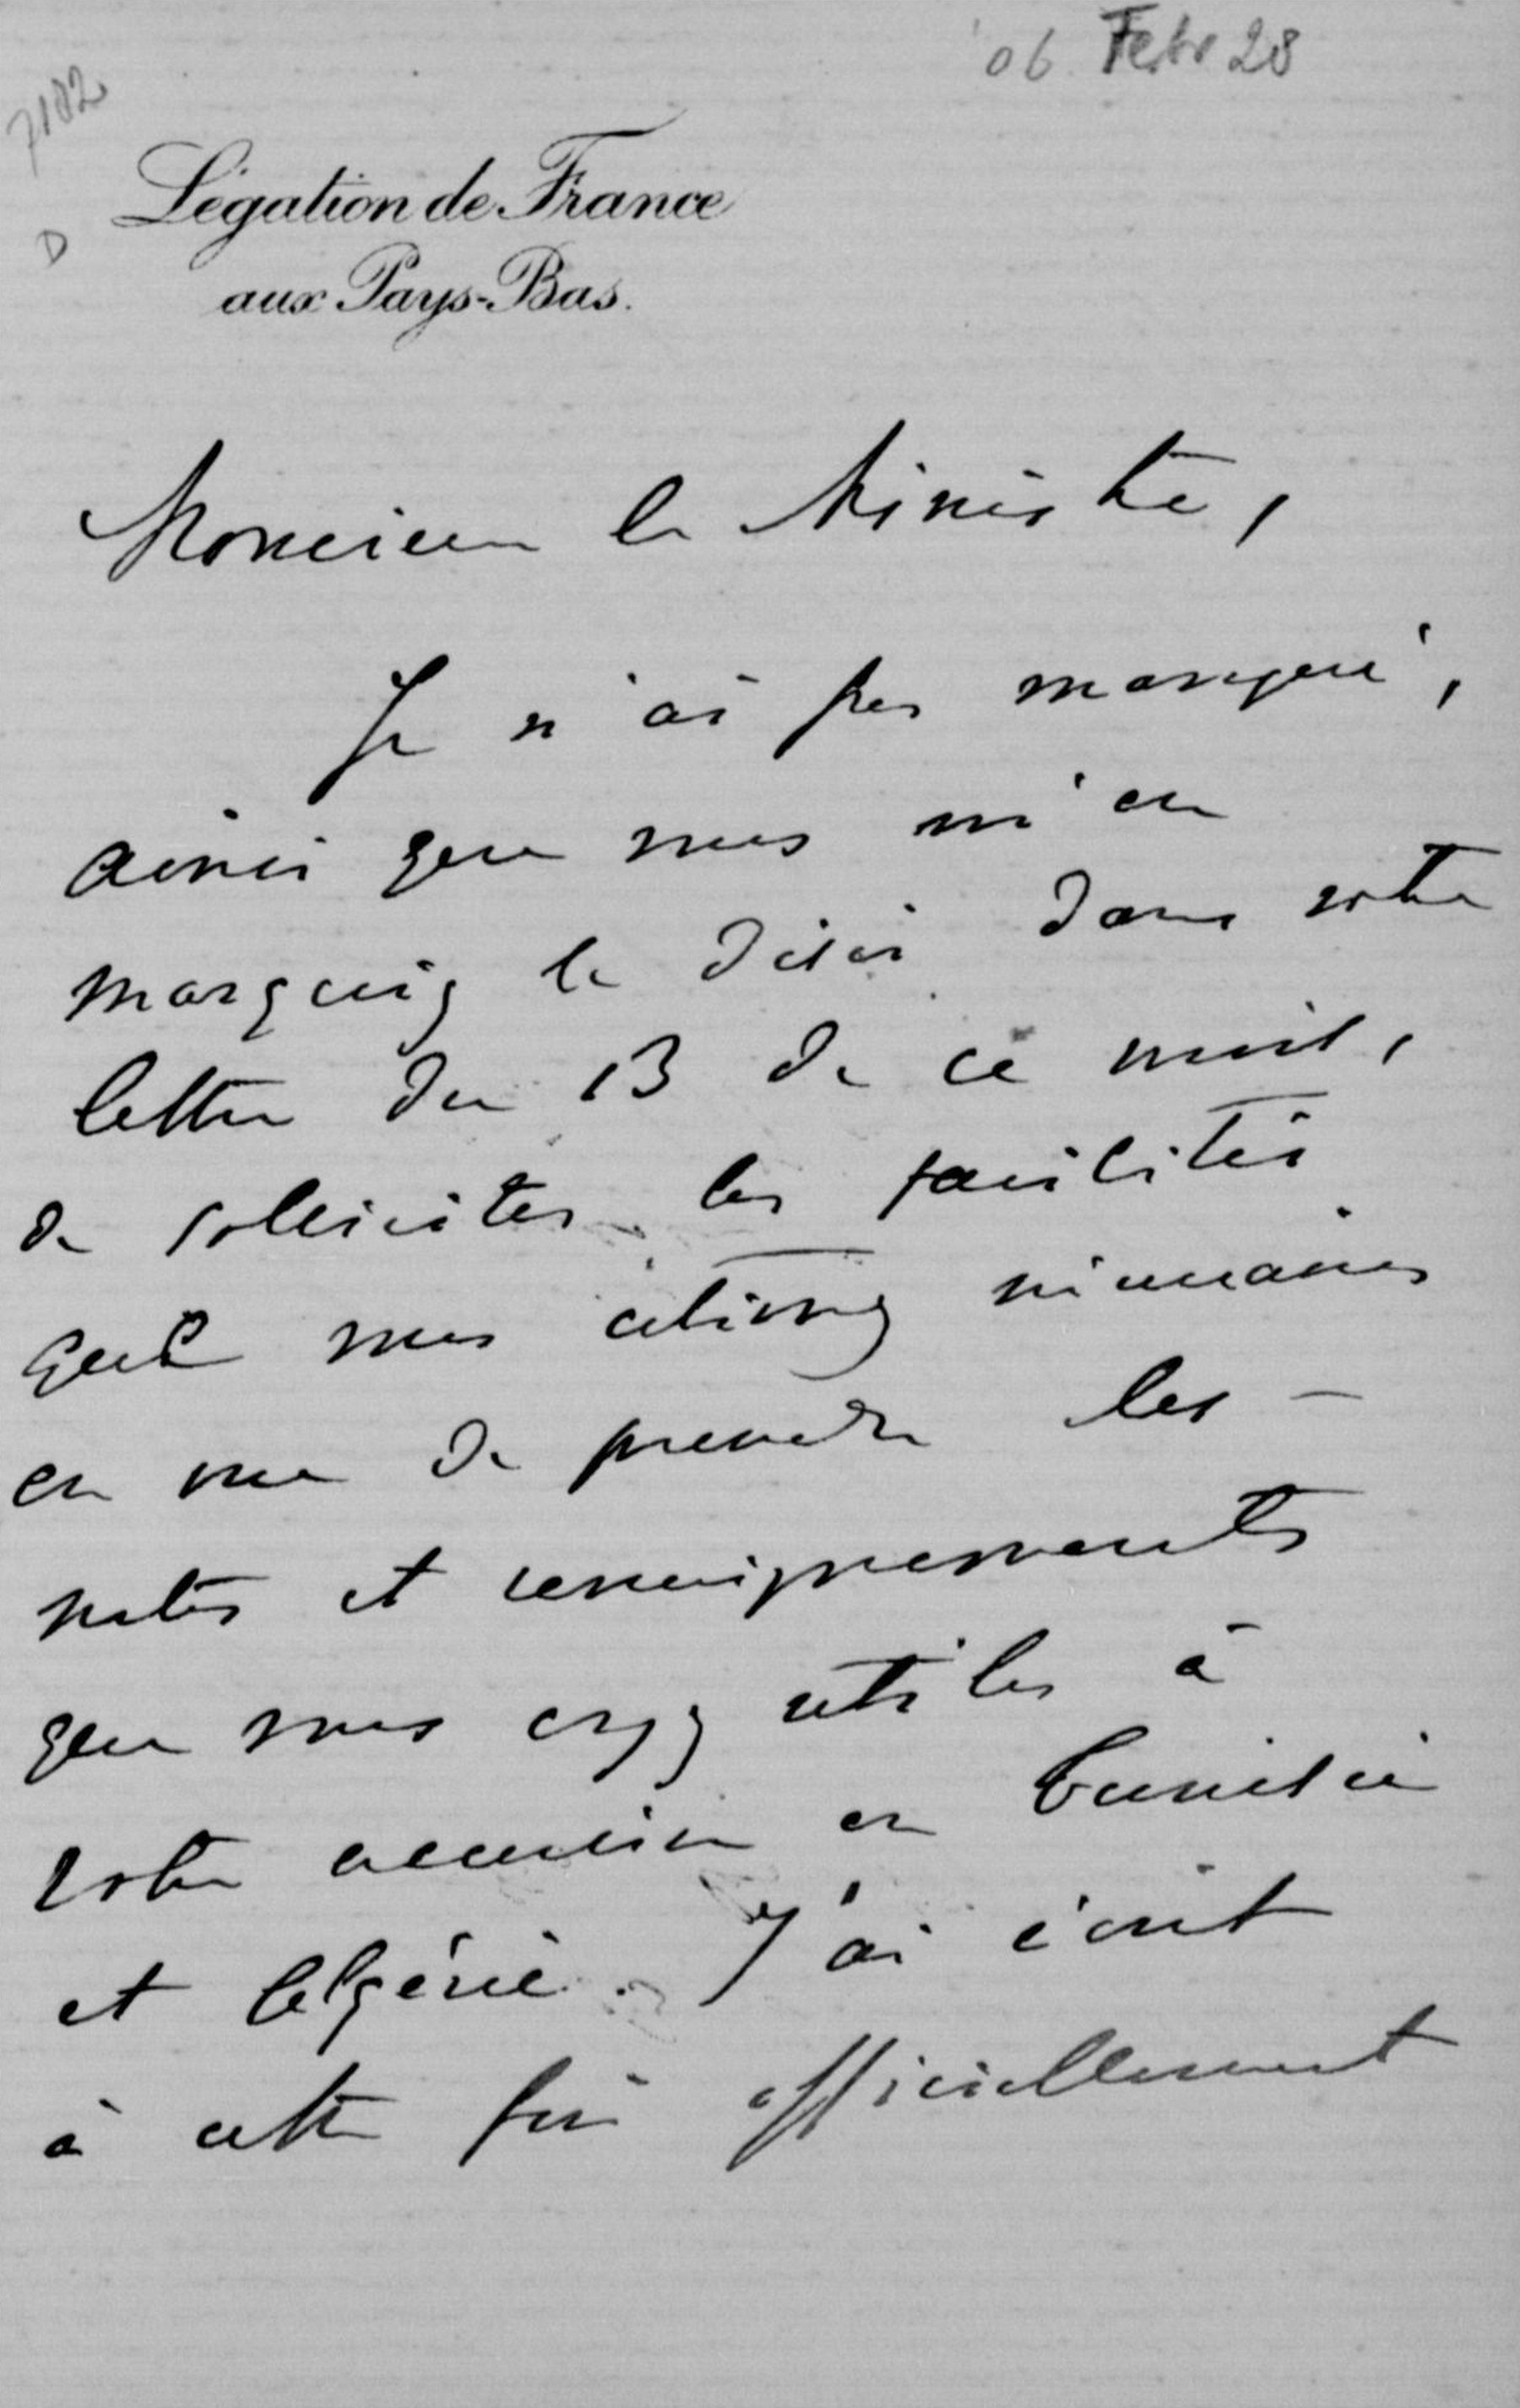 '06 Febr 28
7182
Légation de France
D
aux Pays-Bas.
Monsieur le Ministre,
Je n'ai pas manqué,
ainsi que vous m'en
marquiez le désir dans votre
lettre du 13 de ce mois,
de solliciter les facilités
que vous estimez nécessaires
en vue de prendre les
notes et renseignements
que vous croyez utiles à
votre mission en Tunisie
et Algérie. J'ai écrit
à cette fin officiellement